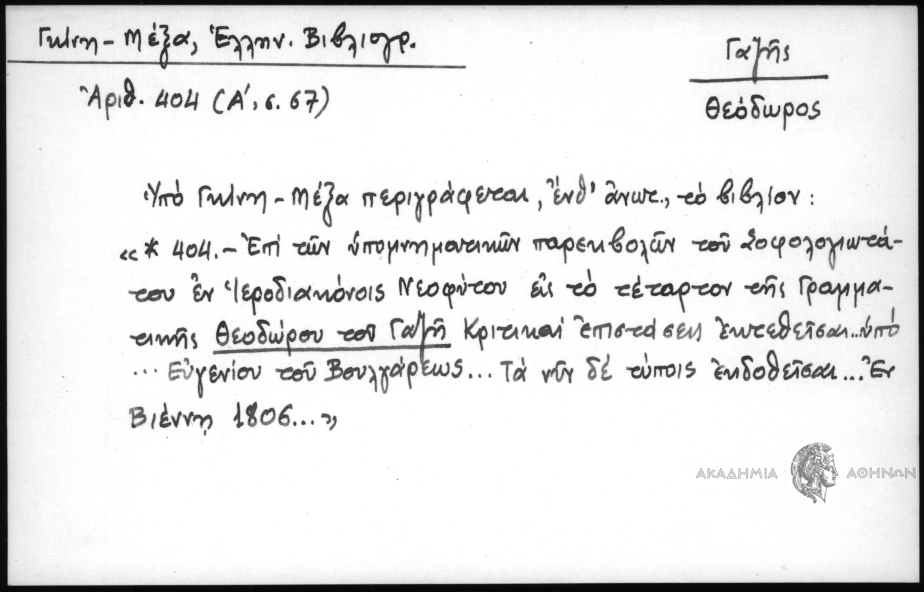 Γκίνη - Μέξα, Ἑλλην. Βιβλιογρ.
Ἀριθ. 404 (Α΄, σ. 67)
Γαζῆς
Θεόδωρος
Ὑπό Γκίνη - Μέξα περιγράφεται, ἔνθ' ἄνωτ., τὸ βιβλίον :
«* 404. - Ἐπί τῶν ὑπομνηματικῶν παρεκβολῶν τοῦ Σοφολογιωτά-
του ἐν Ἱεροδιακόνοις Νεοφύτου εἰς τὸ τέταρτον τῆς Γραμμα-
τικῆς Θεοδώρου τοῦ Γαζῆ Κριτικαί ἐπιστάσεις ἐκτεθεῖσαι...ὑπό
... Εὐγενίου τοῦ Βουλγάρεως... Τὰ νῦν δέ τύποις ἐκδοθεῖσαι... Ἐν
Βιέννῃ 1806...»
ΑΚΑΔΗΜΙΑ ΑΘΗΝΩΝ